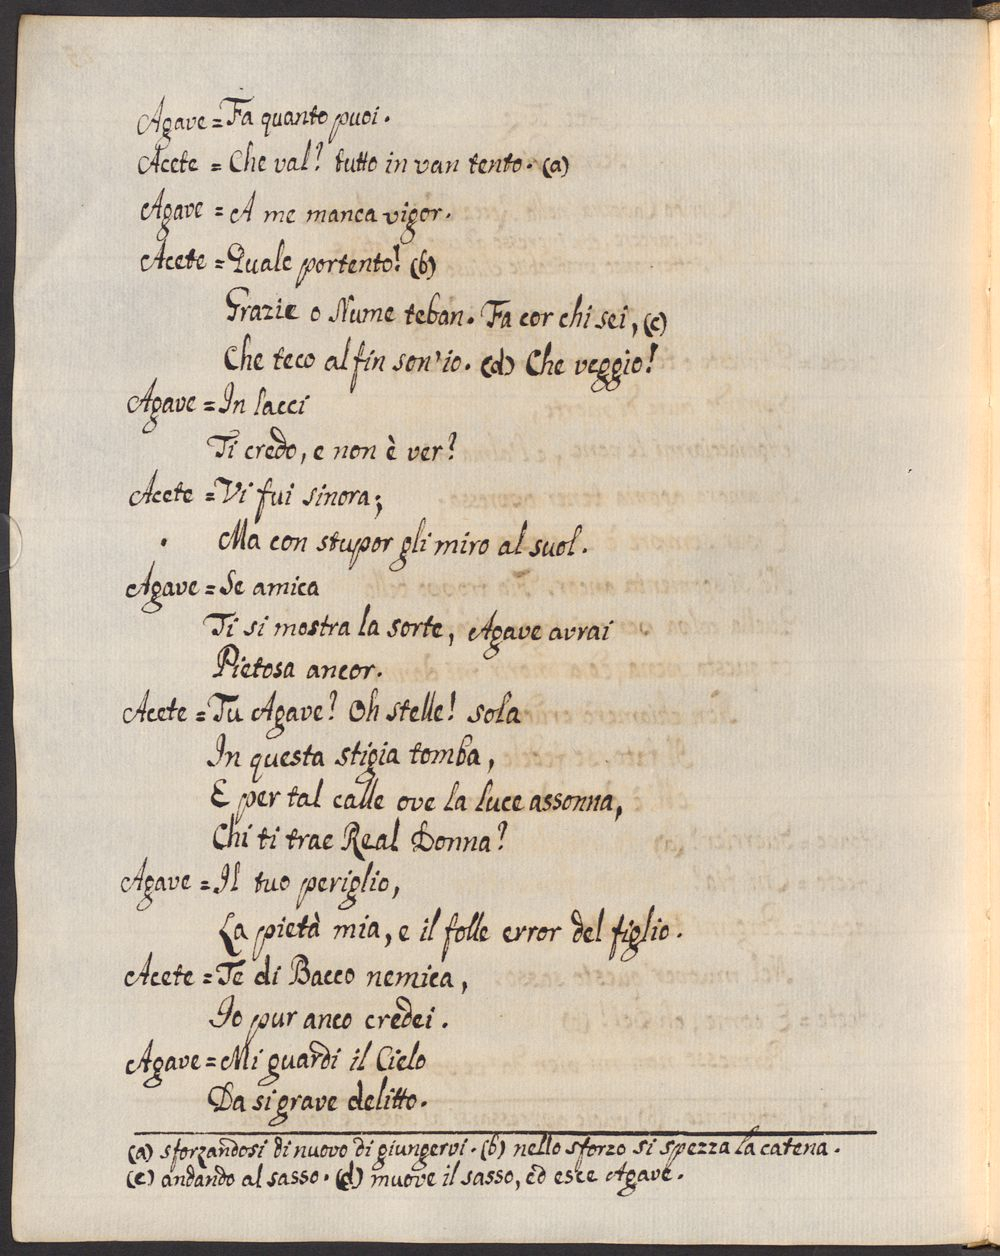 Agave = Fa quanto puoi.
Acete = Che val? tutto in van tento. (a)
Agave = A me manca vigor.
Acete = Quale portento! (b)
Grazie o Nume teban. Fa cor chi sei, (c)
Che teco al fin son'io. (d) Che veggio!
Agave = In lacci
Ti credo, e non è ver?
Acete = Vi fui sinora;
Ma con stupor gli miro al suol.
Agave = Se amica
Ti si mostra la sorte, Agave avrai
Pietosa ancor.
Acete = Tu Agave? Oh stelle! sola
In questa stigia tomba,
E per tal calle ove la luce assonna,
Chi ti trae Real Donna?
Agave = Il tuo periglio,
La pietà mia, e il folle error del figlio.
Acete = Te di Bacco nemica,
Io pur anco credei.
Agave = Mi guardi il Cielo
Da si grave delitto.
(a) sforzandosi di nuovo di giungervi. (b) nello sforzo si spezza la catena.
(c) andando al sasso. (d) muove il sasso, ed esce Agave.